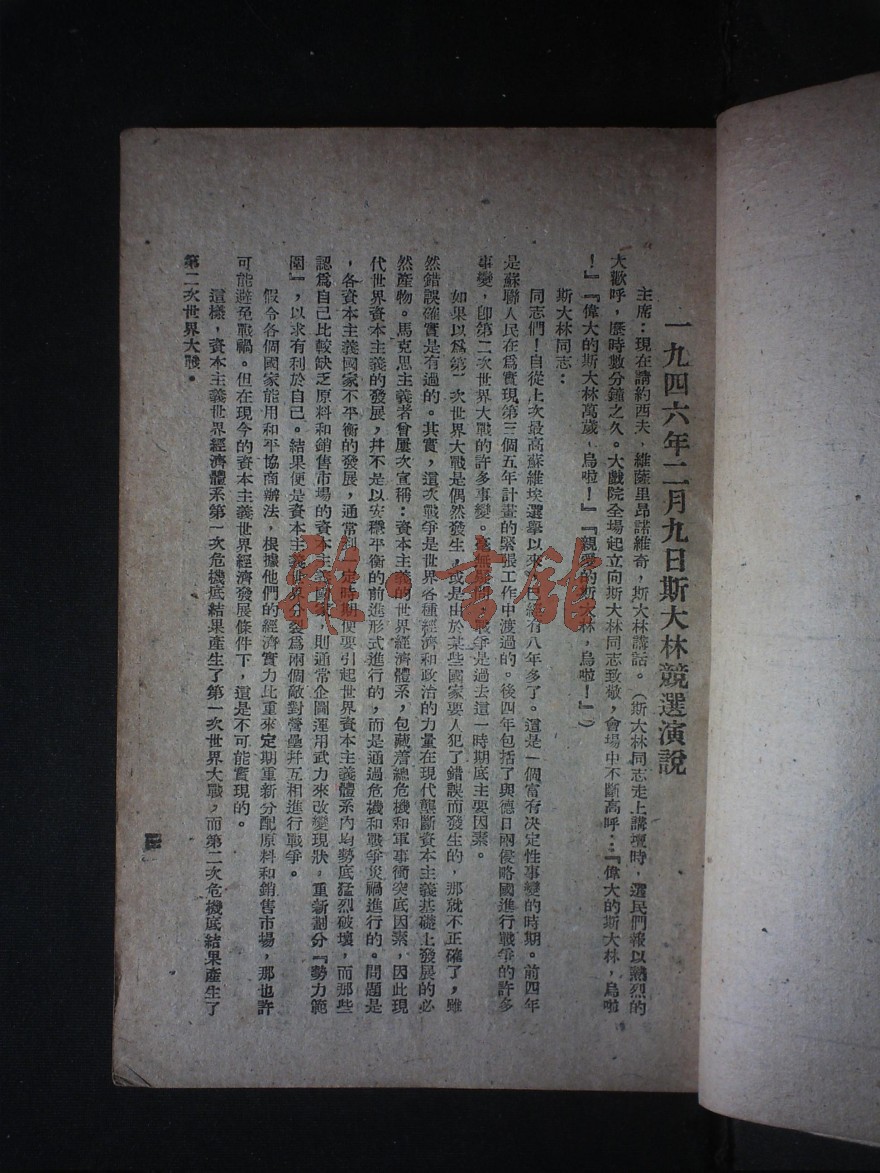 一九四六年二月九日斯大林競選演說
主席：現在請約西夫．維薩里昂諾維奇，斯大林講話。（斯大林同志走上講壇時，選民們報以熱烈的
大歡呼，歷時數分鐘之久。大戲院全場起立向斯大林同志致敬，會場中不斷高呼：『偉大的斯大林，烏啦
！』『偉大的斯大林萬歲，烏啦！』『親愛的斯大林，烏啦！』）
斯大林同志：
同志們！自從上次最高蘇維埃選舉以來，已經有八年多了。這是一個富有決定性事變的時期。前四年
是蘇聯人民在爲實現第三個五年計畫的緊張工作中渡過的。後四年包括了與德日兩侵略國進行戰爭的許多
事變，卽第二次世界大戰的許多事變。毫無疑問，戰爭是過去這一時期底主要因素。
如果以爲第二次世界大戰是偶然發生，或是由於某些國家要人犯了錯誤而發生的，那就不正確了，雖
然錯誤確實是有過的。其實，這次戰爭是世界各種經濟和政治的力量在現代壟斷資本主義基礎上發展的必
然產物。馬克思主義者曾屢次宣稱：資本主義的世界經濟體系，包藏着總危機和軍事衝突底因素，因此現
代世界資本主義的發展，幷不是以安穩平衡的前進形式進行的，而是通過危機和戰爭災禍進行的。問題是
，各資本主義國家不平衡的發展，通常到一定時期便要引起世界資本主義體系內均勢底猛烈破壞，而那些
認爲自己比較缺乏原料和銷售市場的資本主義國家，則通常企圖運用武力來改變現狀，重新劃分『勢力範
圍』，以求有利於自己。結果便是資本主義世界分裂爲兩個敵對營壘幷互相進行戰爭。
假令各個國家能用和平協商辦法，根據他們的經濟實力比重來定期重新分配原料和銷售市場，那也許
可能避免戰禍。但在現今的資本主義世界經濟發展條件下，這是不可能實現的。
這樣，資本主義世界經濟體系第一次危機底結果產生了第一次世界大戰，而第二次危機底結果產生了
第二次世界大戰。
雜書館